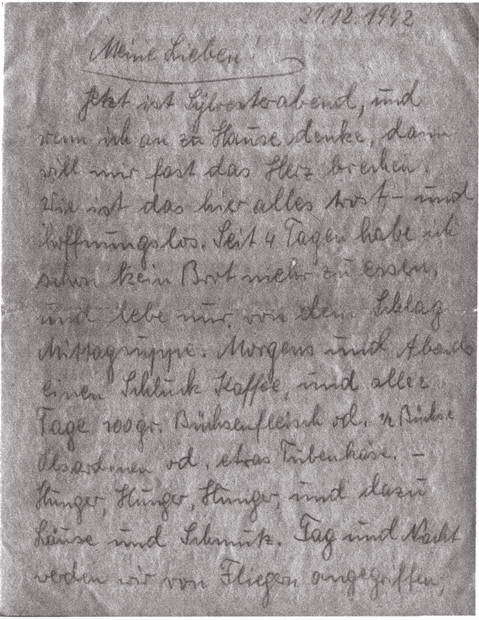 31.12.1942
Meine Lieben!
Jetzt ist Sylvesterabend, und
wenn ich an zu Hause denke, dann
will mir fast das Herz brechen.
Wie ist das hier alles trost- und
hoffnungslos. Seit 4 Tagen habe ich
schon kein Brot mehr zu essen,
und lebe nur von dem Schlag
Mittagsuppe. Morgens und Abends
einen Schluck Kaffee, und alle 2
Tage 100 gr. Büchsenfleisch od. ½ Büchse
Ölsardinen od. etwas Tubenkäse. -
Hunger, Hunger, Hunger, und dazu
Läuse und Schmutz. Tag und Nacht
werden wir von Fliegern angegriffen,